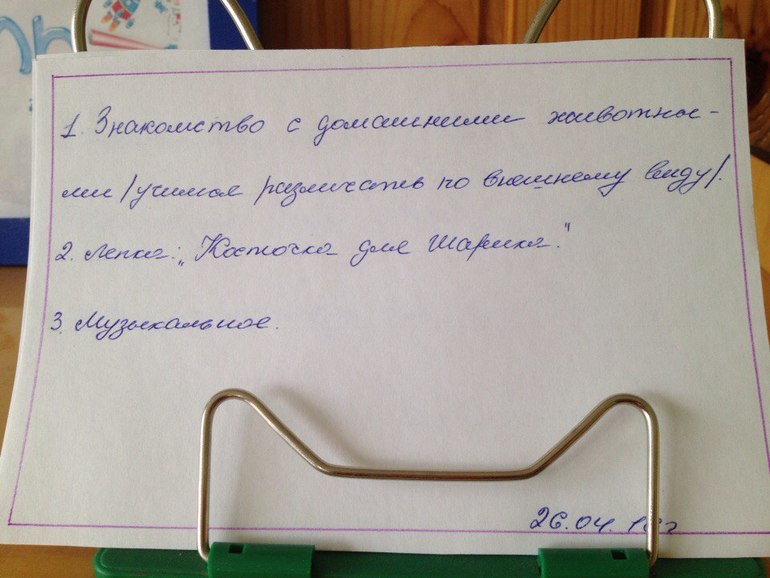 1. Знакомство с домашними животны-
ми /учимся различать по внешнему виду/.
2. Лепка: „Косточка для Шарика."
3. Музыкальное.
26.04.